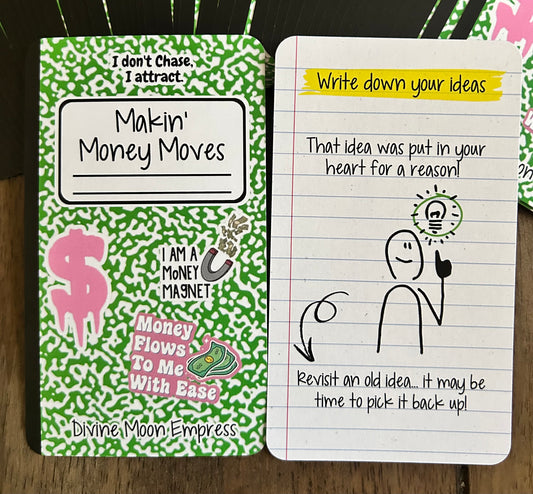 I don't Chase,
I attract.
Makin'
Money Moves
I AM A
MONEY
MAGNET
Money
Flows
To Me
With Ease
Divine Moon Empress
Write down your ideas
That idea was put in your
heart for a reason!
Revisit an old idea... it may be
time to pick it back up!